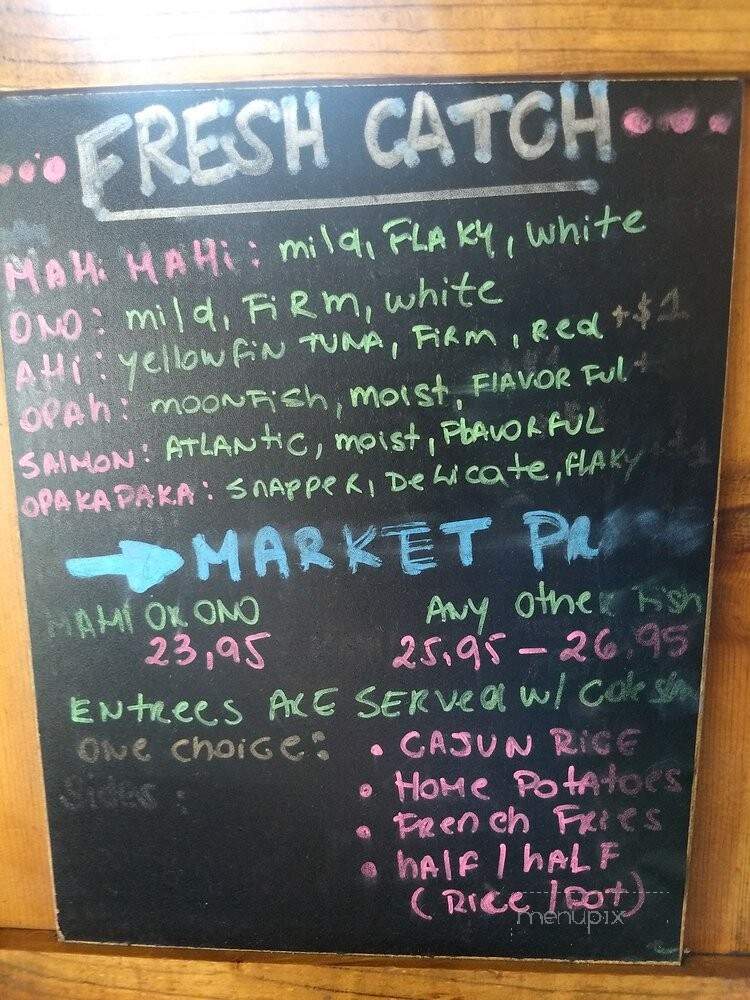 FRESH CATCH
MAHi MAHi: mild, FLAKY, white
ONO: mild, FiRM, white
AHi: yellowfin TUNA, FiRM, Red +$1
OPAH: MOONFiSH, MOiST, FlAVORFul +
SAlMON: ATLANtiC, moist, FlAVORFUL
OPAKAPAKA: SNAPPER, DeliCAte, FLAKY
MARKET
MAHI OR ONO ANY OtHeR FisH
23,95 25.95 – 26.95
ENtRees ARE SERVED w/ Coleslaw
ONE CHOiCe: • CAJUN RiCE
Sides: • HOMe POtAtOeS
• FRenCH FRieS
• hAlF / hALF
( RiCe / POt)
menupix